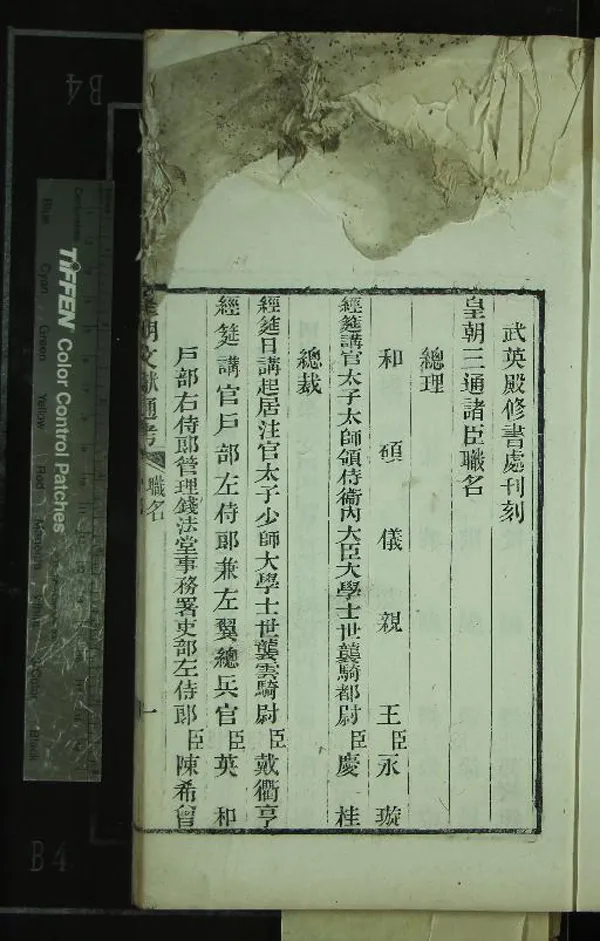 武英殿修書處刊刻
皇朝三通諸臣職名
總理
和碩儀親王臣永璇
經筵講官太子太師領侍衛內大臣大學士世襲騎都尉臣慶桂
總裁
經筵日講起居注官太子少師大學士世襲雲騎尉臣戴衢亨
經筵講官戶部左侍郎兼左翼總兵官臣英和
戶部右侍郎管理錢法堂事務署吏部左侍郎臣陳希曾
皇朝文獻通考 職名 一
TIFFEN Color Control Patches
Blue Cyan Green Yellow Red Magenta White 3/Color Black
Centimetres
B4
B4